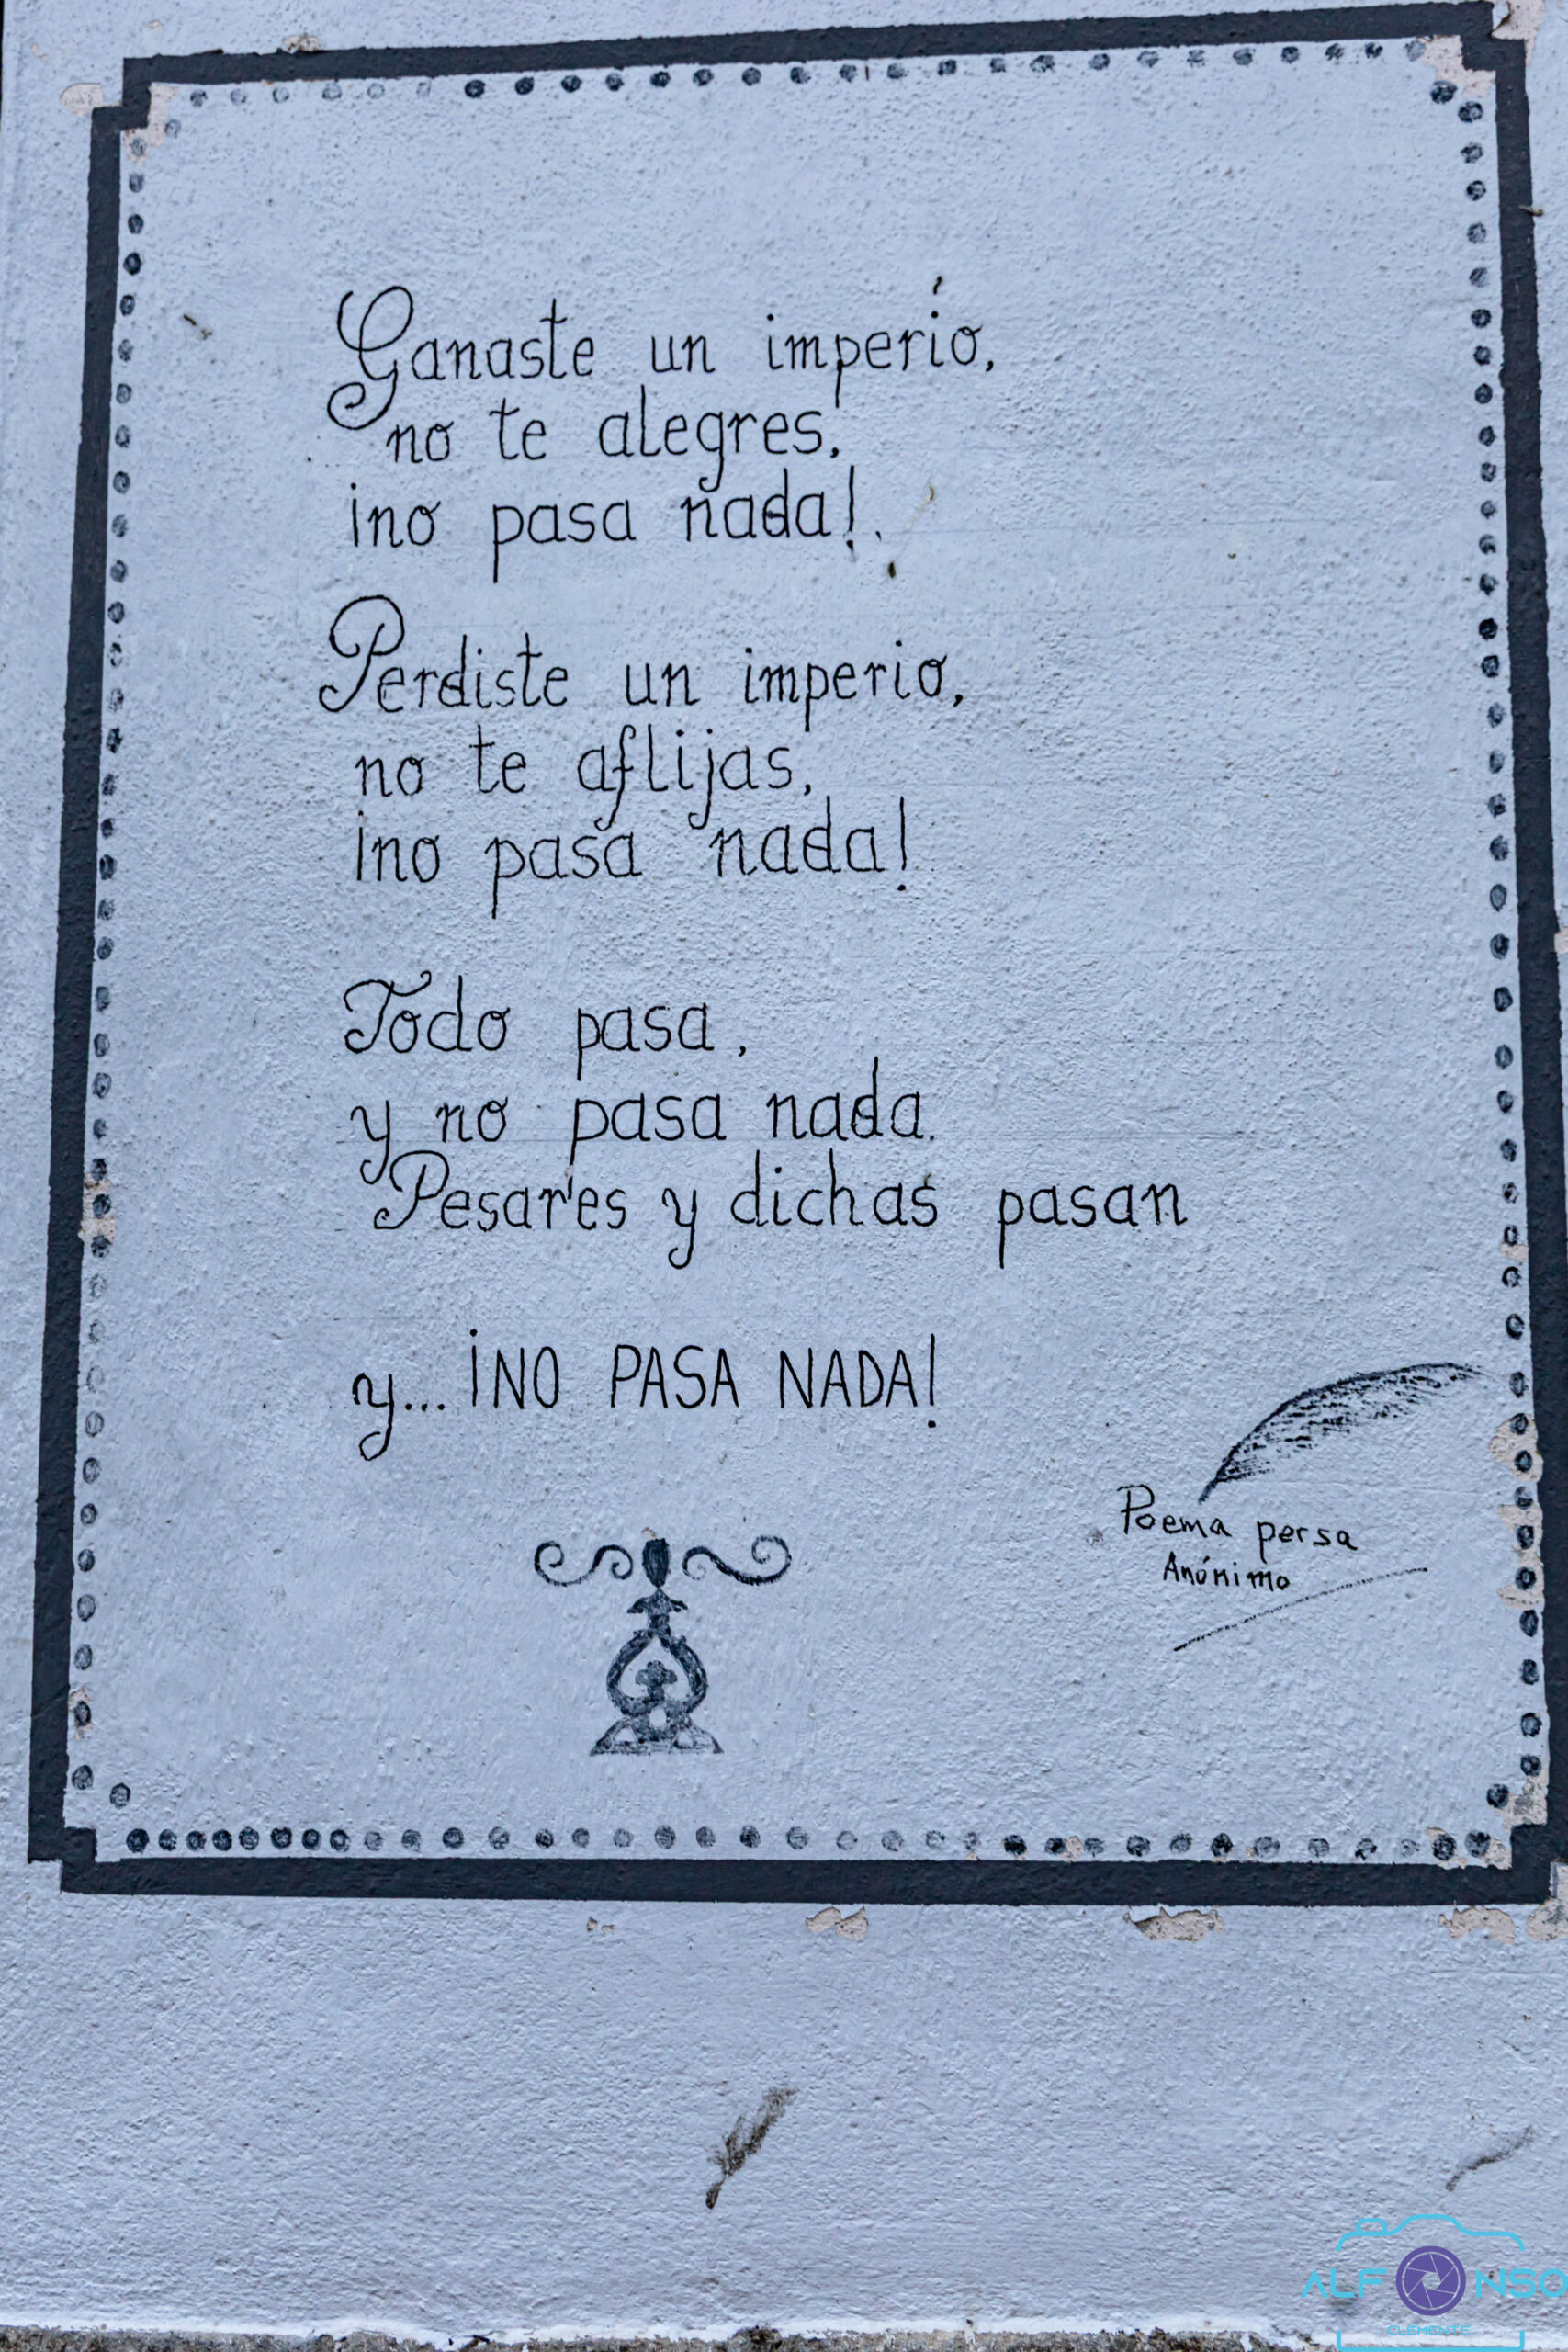 Ganaste un imperio,
no te alegres,
¡no pasa nada!.
Perdiste un imperio,
no te aflijas,
¡no pasa nada!
Todo pasa,
y no pasa nada.
Pesares y dichas pasan
y... ¡NO PASA NADA!
Poema persa
Anónimo
ALFONSO
CLEMENTE